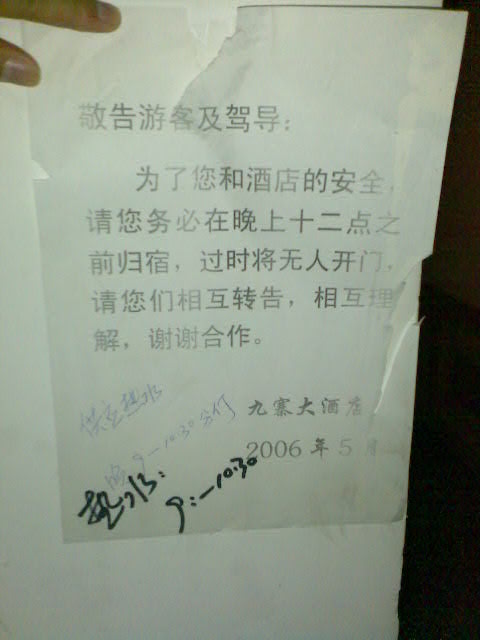 敬告游客及驾导：
为了您和酒店的安全，
请您务必在晚上十二点之
前归宿，过时将无人开门，
请您们相互转告，相互理
解，谢谢合作。
供应热水
九寨大酒店
晚9—10:30分付
2006年5月
热水：
9:—10:30